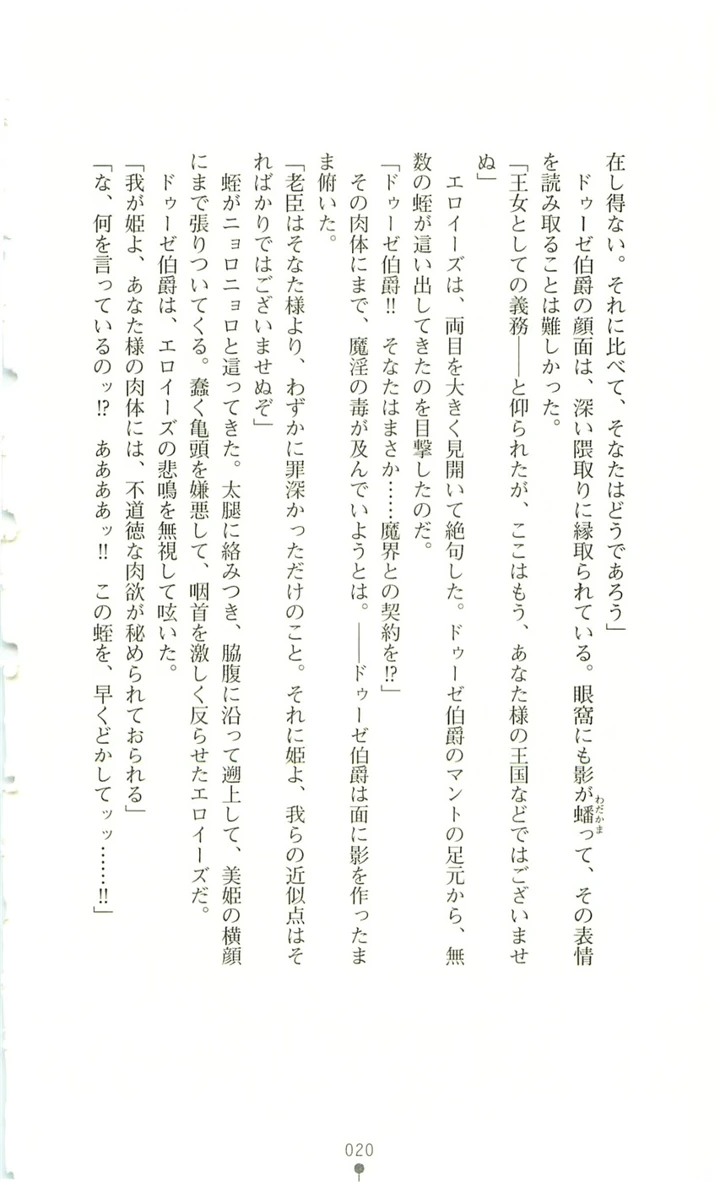 在し得ない。それに比べて、そなたはどうであろう」
　ドゥーゼ伯爵の顔面は、深い隈取りに縁取られている。眼窩にも影が蟠って、その表情
わだかま
を読み取ることは難しかった。
「王女としての義務――と仰られたが、ここはもう、あなた様の王国などではございませ
ぬ」
　エロイーズは、両目を大きく見開いて絶句した。ドゥーゼ伯爵のマントの足元から、無
数の蛭が這い出してきたのを目撃したのだ。
「ドゥーゼ伯爵‼　そなたはまさか……魔界との契約を⁉」
　その肉体にまで、魔淫の毒が及んでいようとは。――ドゥーゼ伯爵は面に影を作ったま
ま俯いた。
「老臣はそなた様より、わずかに罪深かっただけのこと。それに姫よ、我らの近似点はそ
ればかりではございませぬぞ」
　蛭がニョロニョロと這ってきた。太腿に絡みつき、脇腹に沿って遡上して、美姫の横顔
にまで張りついてくる。蠢く亀頭を嫌悪して、咽首を激しく反らせたエロイーズだ。
　ドゥーゼ伯爵は、エロイーズの悲鳴を無視して呟いた。
「我が姫よ、あなた様の肉体には、不道徳な肉欲が秘められておられる」
「な、何を言っているのッ⁉　ああああッ‼　この蛭を、早くどかしてッッ……‼」
020